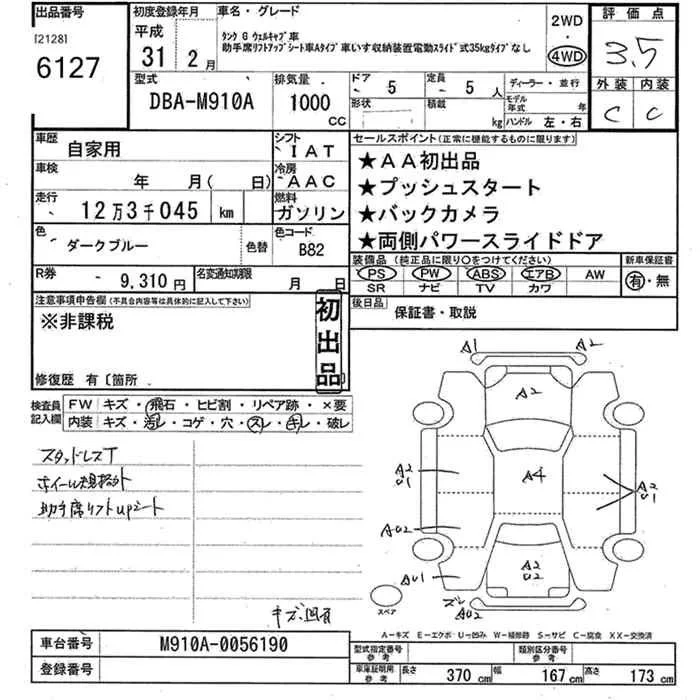 出品番号
[2128]
6127
初度登録年月
平成
31 2月
車名・グレード
タンク G ウェルキャブ車
助手席リフトアップシート車Aタイプ 車いす収納装置電動スライド式35kgタイプなし
2WD
・
4WD
評価点
3.5
外装 内装
C C
型式
DBA-M910A
排気量
1000
CC
ドア 5
定員 5人
形状
積載 kg
ディーラー・並行
モデル年式 年
ハンドル 左・右
車歴 自家用
シフト IAT
車検 年 月( 日)
冷房 AAC
走行 12万3千045 km
燃料 ガソリン
色 ダークブルー 色替
色コード B82
R券 9,310円
名変通知期限 月 日
セールスポイント(正常に機能するものに限ります)
★AA初出品
★プッシュスタート
★バックカメラ
★両側パワースライドドア
装備品(純正品に限り○をつけてください)
PS PW ABS エアB AW
SR ナビ TV カワ
新車保証書
有・無
後日品 保証書・取説
注意事項申告欄(不具合内容等は具体的に記入して下さい)
※非課税
初出品
修復歴 有〔箇所
検査員記入欄
FW キズ・飛石・ヒビ割・リペア跡・×要
内装 キズ・汚レ・コゲ・穴・スレ・キレ・破レ
スタッドレスT
ホイール規格外
助手席リフトupシート
キズ凹有
A1 A2
A2
A2
U1
A4
A2
U1
AU2
AU1
A2
U2
ズレ
AU2
スペア
A−キズ E−エクボ U−凹み W−補修跡 S−サビ C−腐食 XX−交換済
車台番号 M910A-0056190
登録番号
型式指定番号
参考
類別区分番号
参考
車庫証明用
参考
長さ 370 cm 幅 167 cm 高さ 173 cm